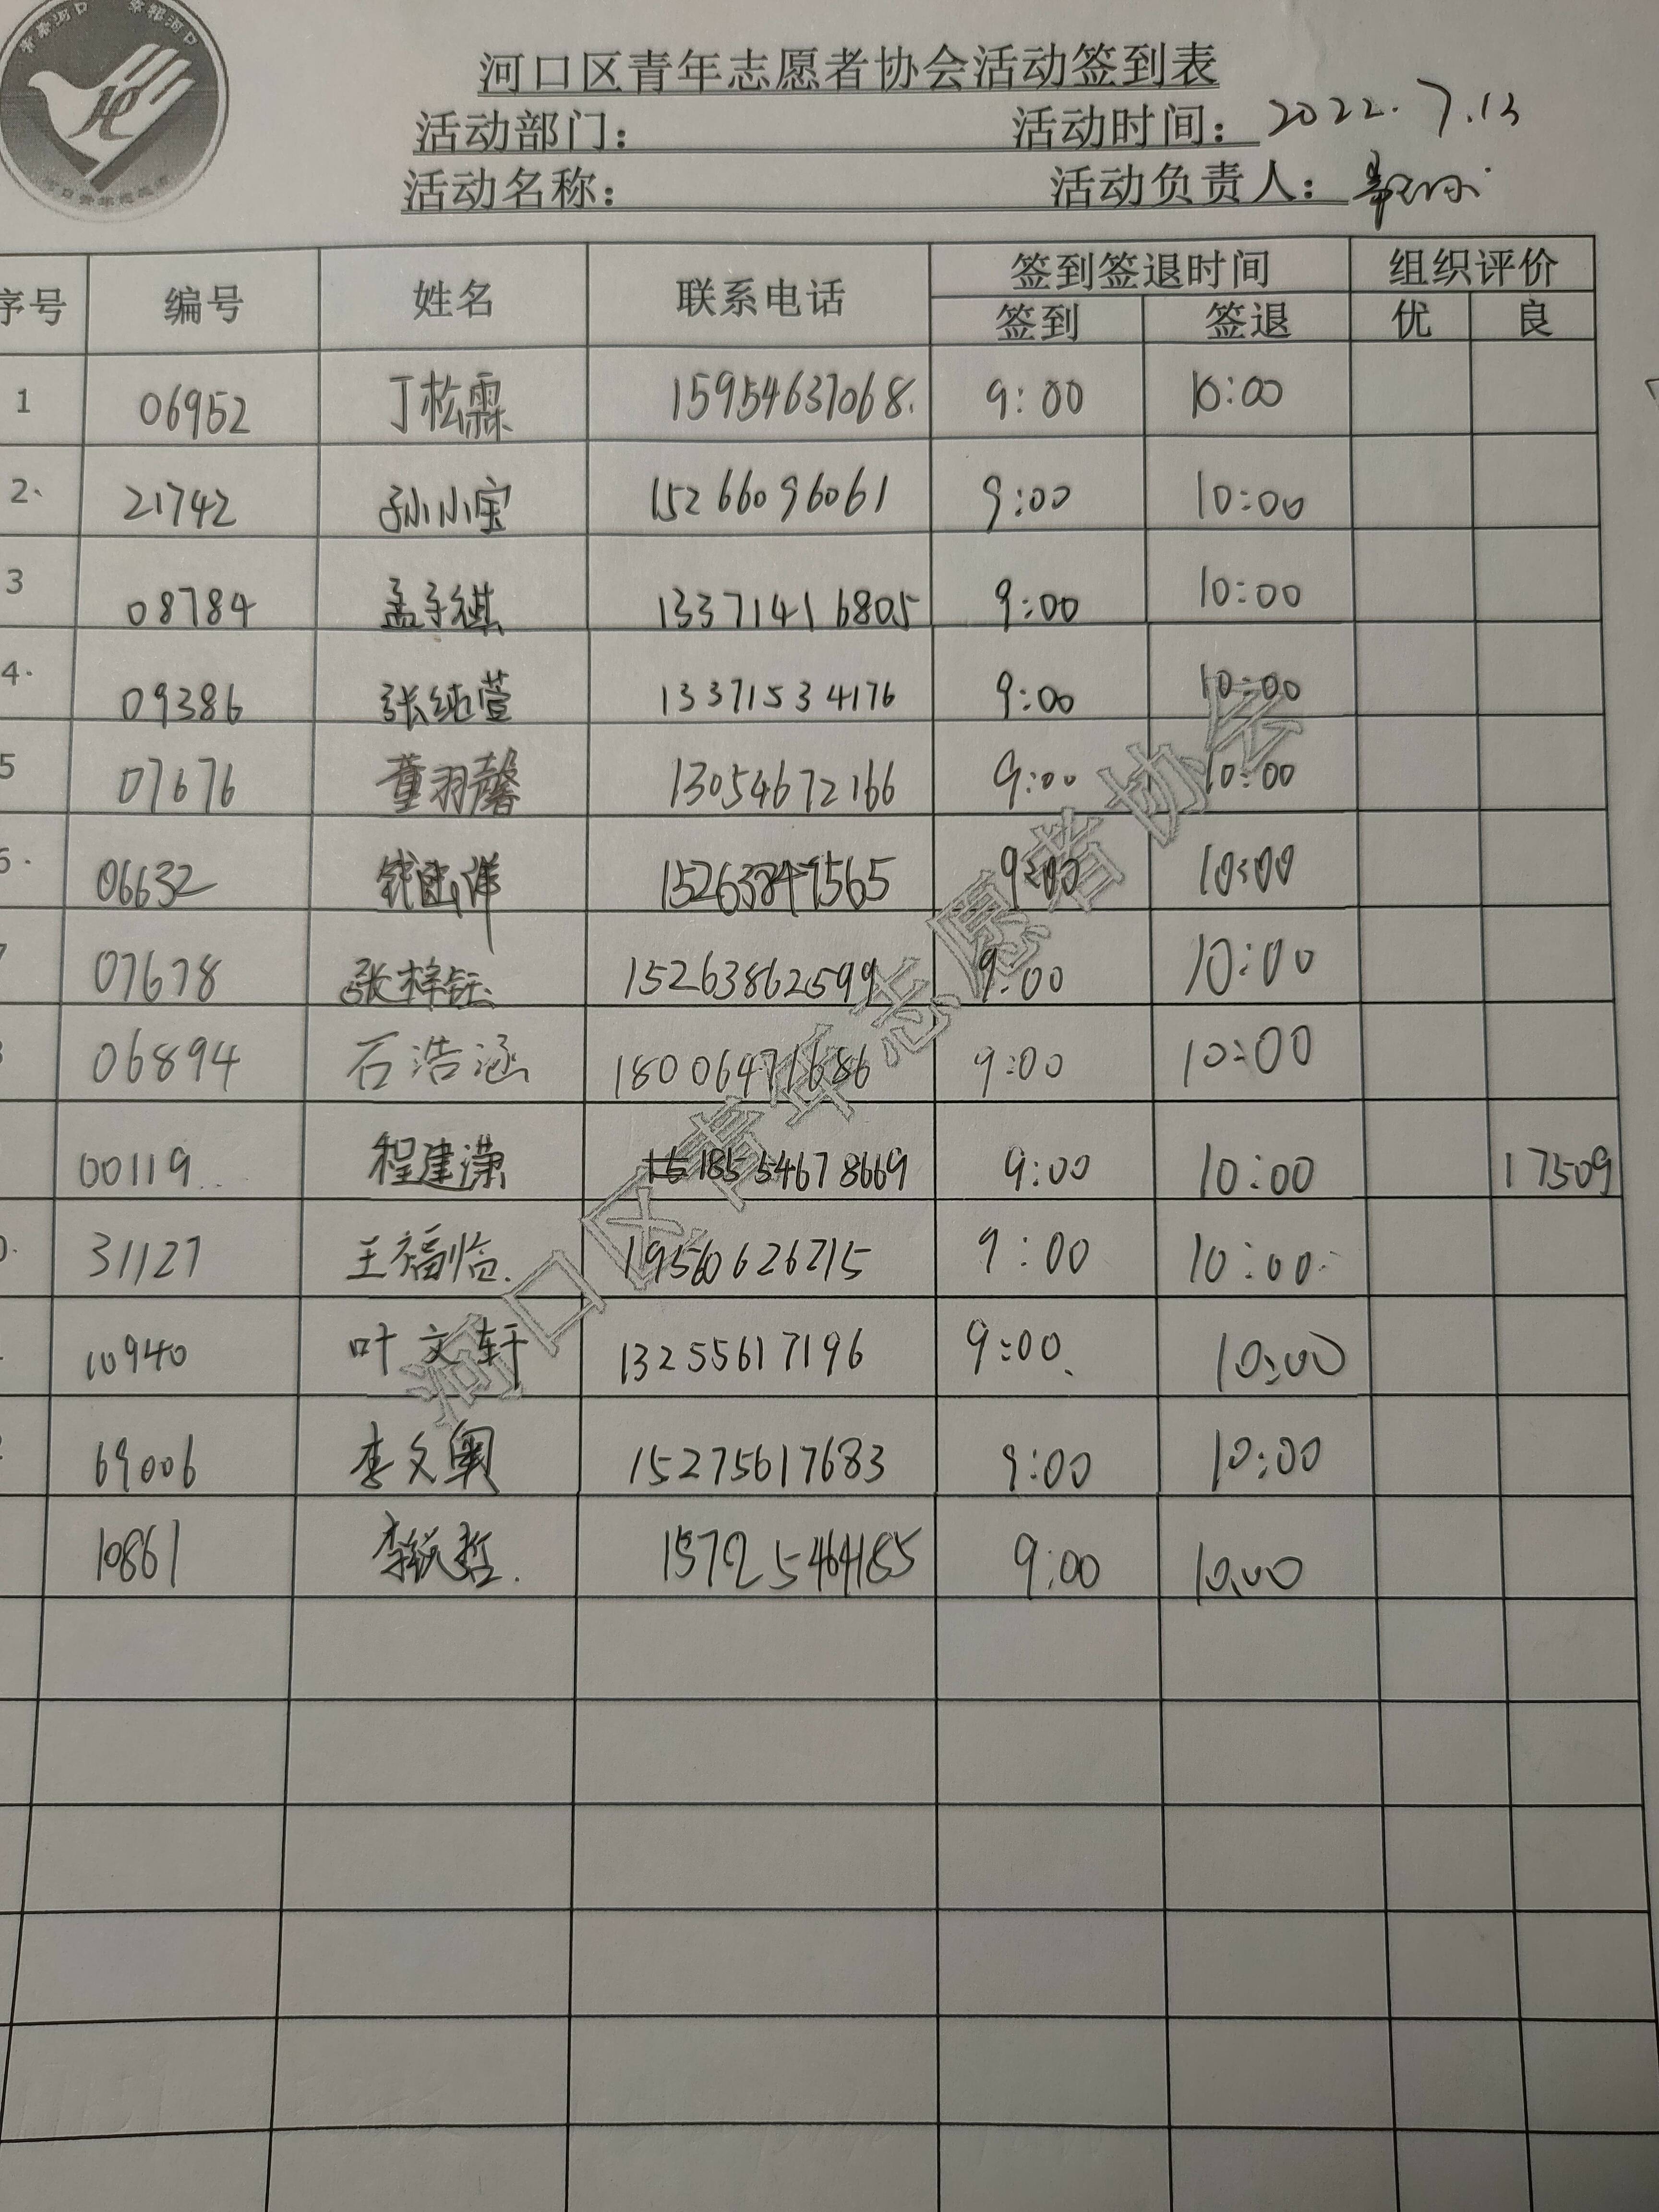 河口区青年志愿者协会活动签到表
活动部门： 活动时间：2022.7.13
活动名称： 活动负责人：
序号 编号 姓名 联系电话 签到签退时间 组织评价
签到 签退 优 良
1 06952 丁松霖 15954637068. 9:00 10:00
2. 21742 孙小宝 15266096061 9:00 10:00
3 08784 孟子祺 13371416805 9:00 10:00
4. 09386 张纯萱 13371534176 9:00 10:00
5 07676 董羽馨 13054672166 9:00 10:00
6. 06632 15263847565 9:00 10:00
07678 张梓钰 15263862599 9:00 10:00
06894 石浩涵 18006471686 9:00 10:00
00119 程建潇 18554678669 9:00 10:00 17509
31127 王福临. 19560626715 9:00 10:00
10940 叶文轩 13255617196 9:00 10:00
69006 李文 15275617683 9:00 10:00
10861 李 哲. 15725464185 9:00 10:00
河口区青年志愿者协会